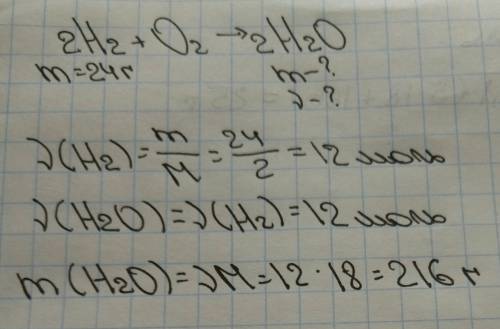 2H2 + O2 → 2H2O
m=24г
m-?
ν-?
ν(H2)=m/M=24/2=12 моль
ν(H2O)=ν(H2)=12 моль
m(H2O)=νM=12·18=216 г